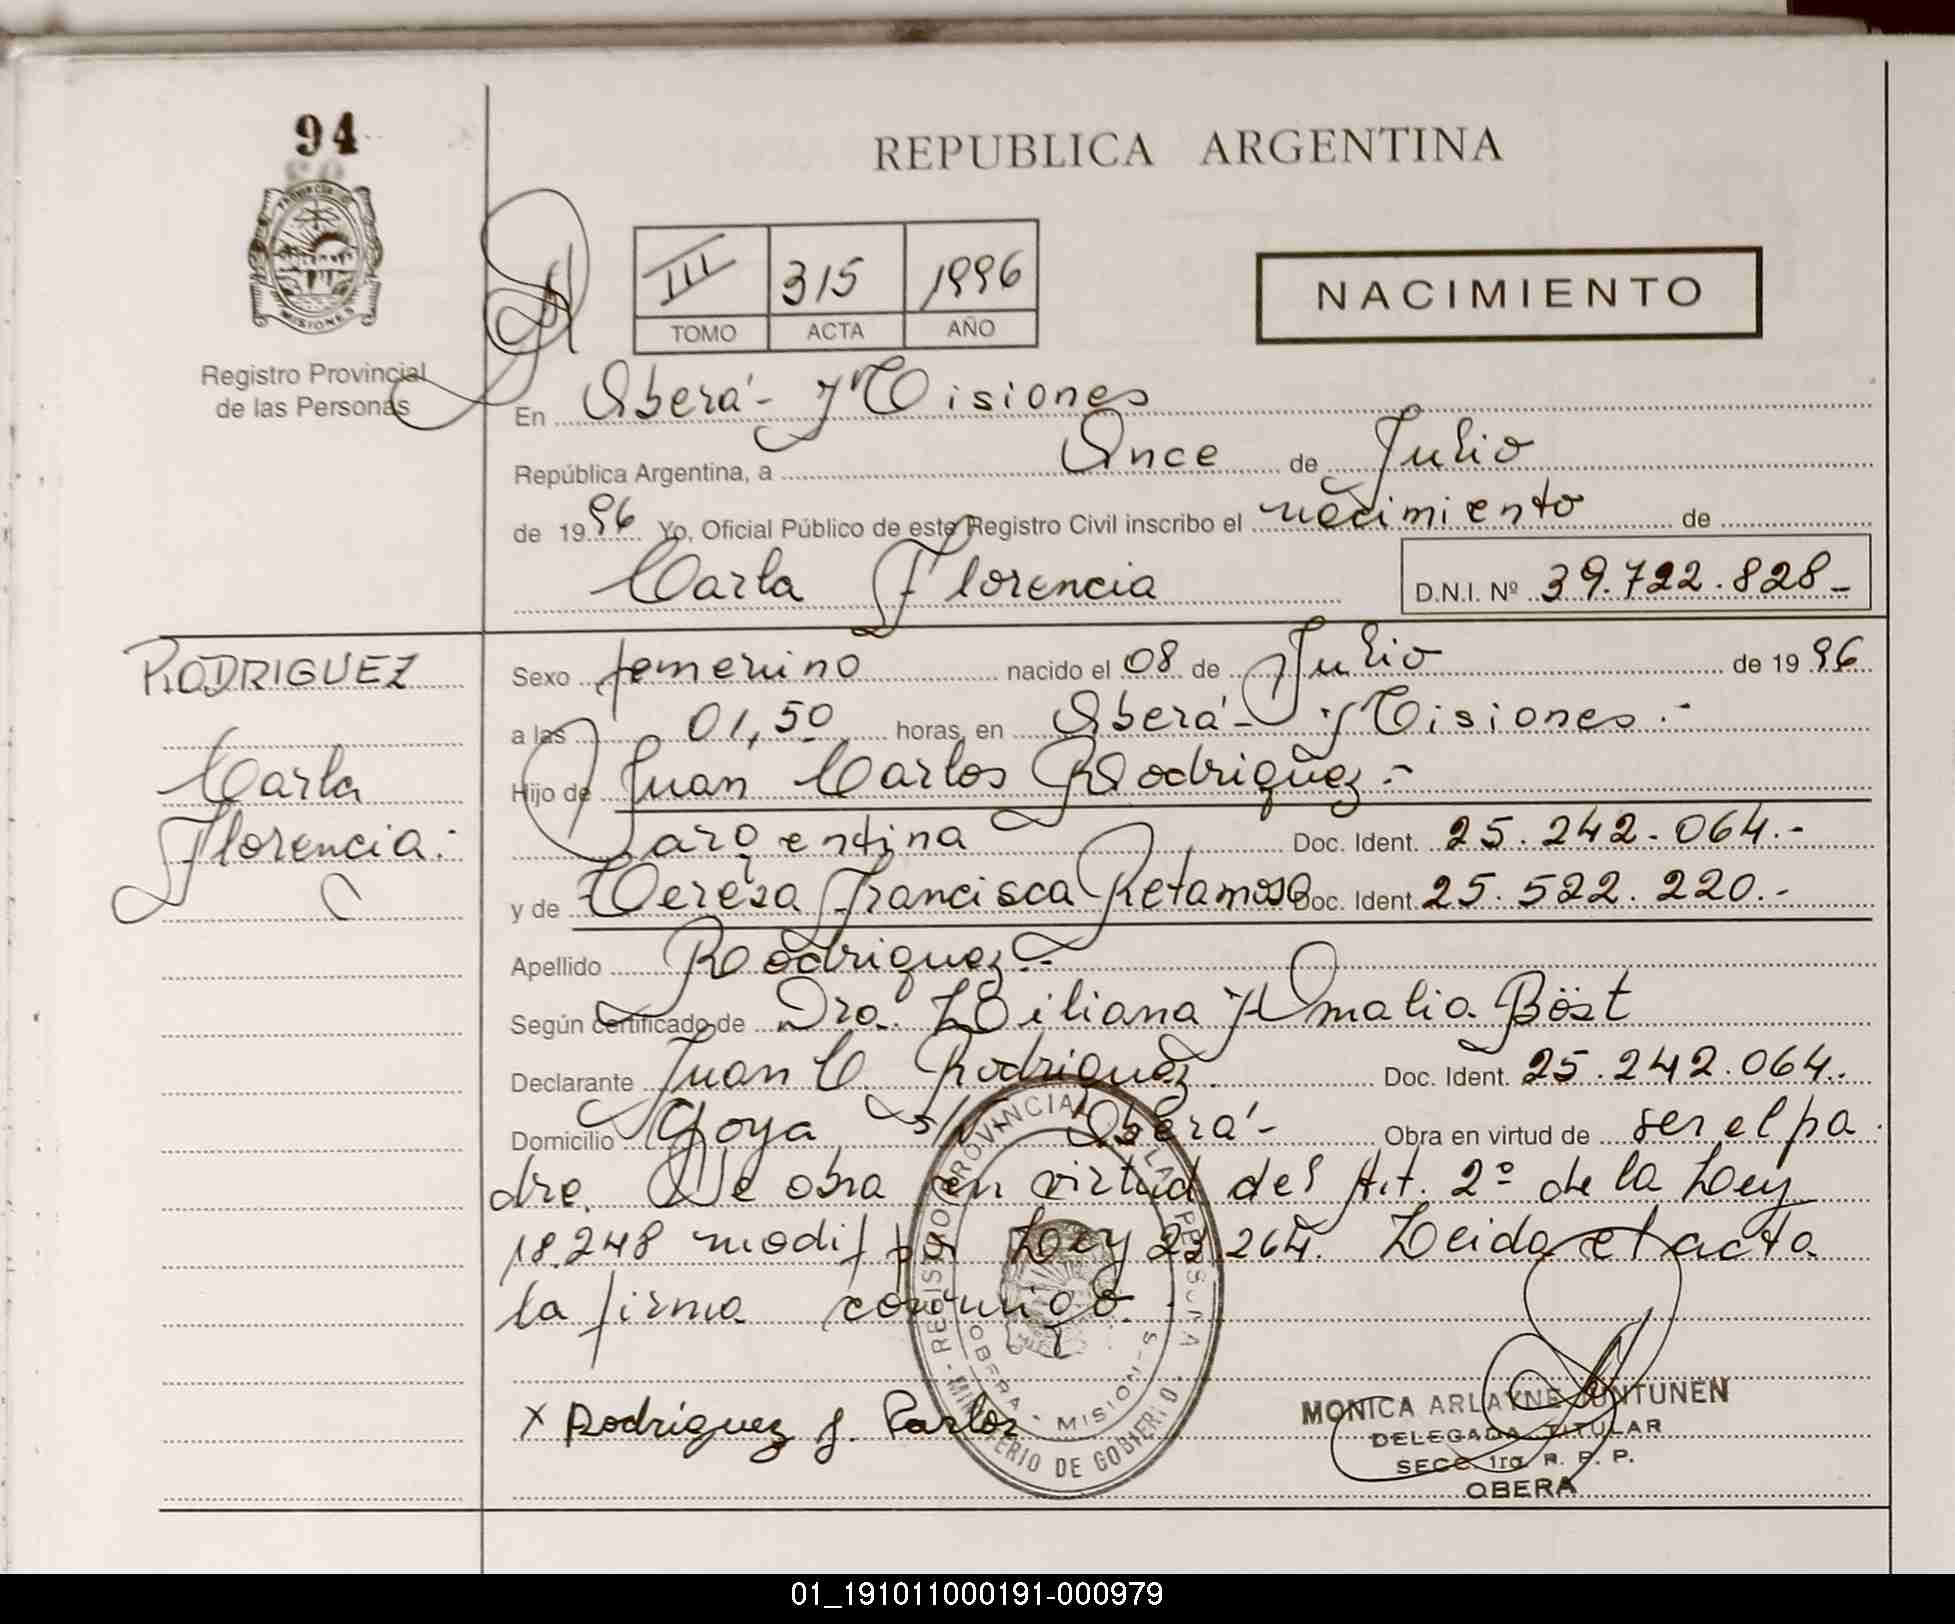 94
REPUBLICA ARGENTINA
MISIONES
Registro Provincial
de las Personas
III 315 1996
TOMO ACTA AÑO
NACIMIENTO
En Oberá - Misiones
República Argentina, a Once de Julio
de 1996 Yo, Oficial Público de este Registro Civil inscribo el nacimiento de
Carla Florencia D.N.I. Nº 39.722.828-
RODRIGUEZ
Carla
Florencia.-
Sexo femenino nacido el 08 de Julio de 1996
a las 01,50 horas, en Oberá - Misiones.-
Hijo de Juan Carlos Rodriguez.-
argentina Doc. Ident. 25.242.064.-
y de Tereza Francisca Retamoso Doc. Ident. 25.522.220.-
Apellido Rodriguez.-
Según certificado de Dra. Liliana Amalia Böst
Declarante Juan C. Rodriguez. Doc. Ident. 25.242.064.
Domicilio Goya s/n Oberá- Obra en virtud de ser el pa
dre. Se obra en virtud del Art. 2º de la Ley
18.248 modif por Ley 23.264. Leida el acta
la firma conmigo.
REGISTRO PROVINCIAL DE LAS PERSONAS
MINISTERIO DE GOBIERNO
OBERA - MISIONES
x Rodriguez J. Carlos
MONICA ARLAYNE
DELEGADA TITULAR
SECC. 1ra. R. P. P.
OBERA
01_191011000191-000979